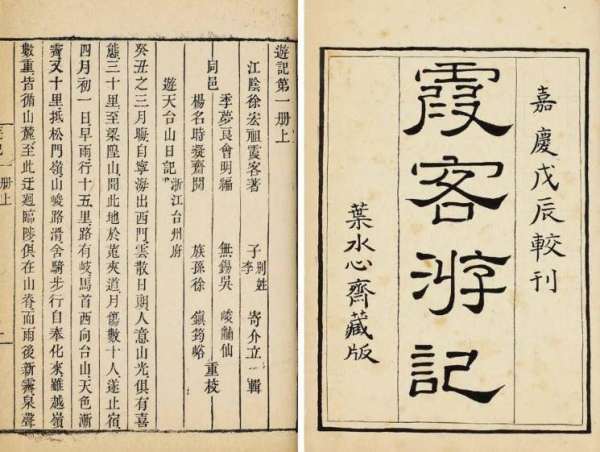 嘉慶戊辰較刊
霞客游記
葉水心齋藏版
遊記第一册上
江陰徐宏祖霞客著 子李別姓寄介立輯
季夢良會明編 無錫吳峻黼仙
同邑 重校
楊名時凝齋閱 族孫徐鎮筠峪
遊天台山日記 浙江台州府
癸丑之三月晦自寧海出西門雲散日朗人意山光俱有喜
態三十里至梁隍山聞此地於菟夾道月傷數十人遂止宿
四月初一日早雨行十五里路有岐馬首西向台山天色漸
霽又十里抵松門嶺山峻路滑舍騎步行自奉化來雖越嶺
數重皆循山麓至此迂迴臨陟俱在山脊而雨後新霽泉聲
册上